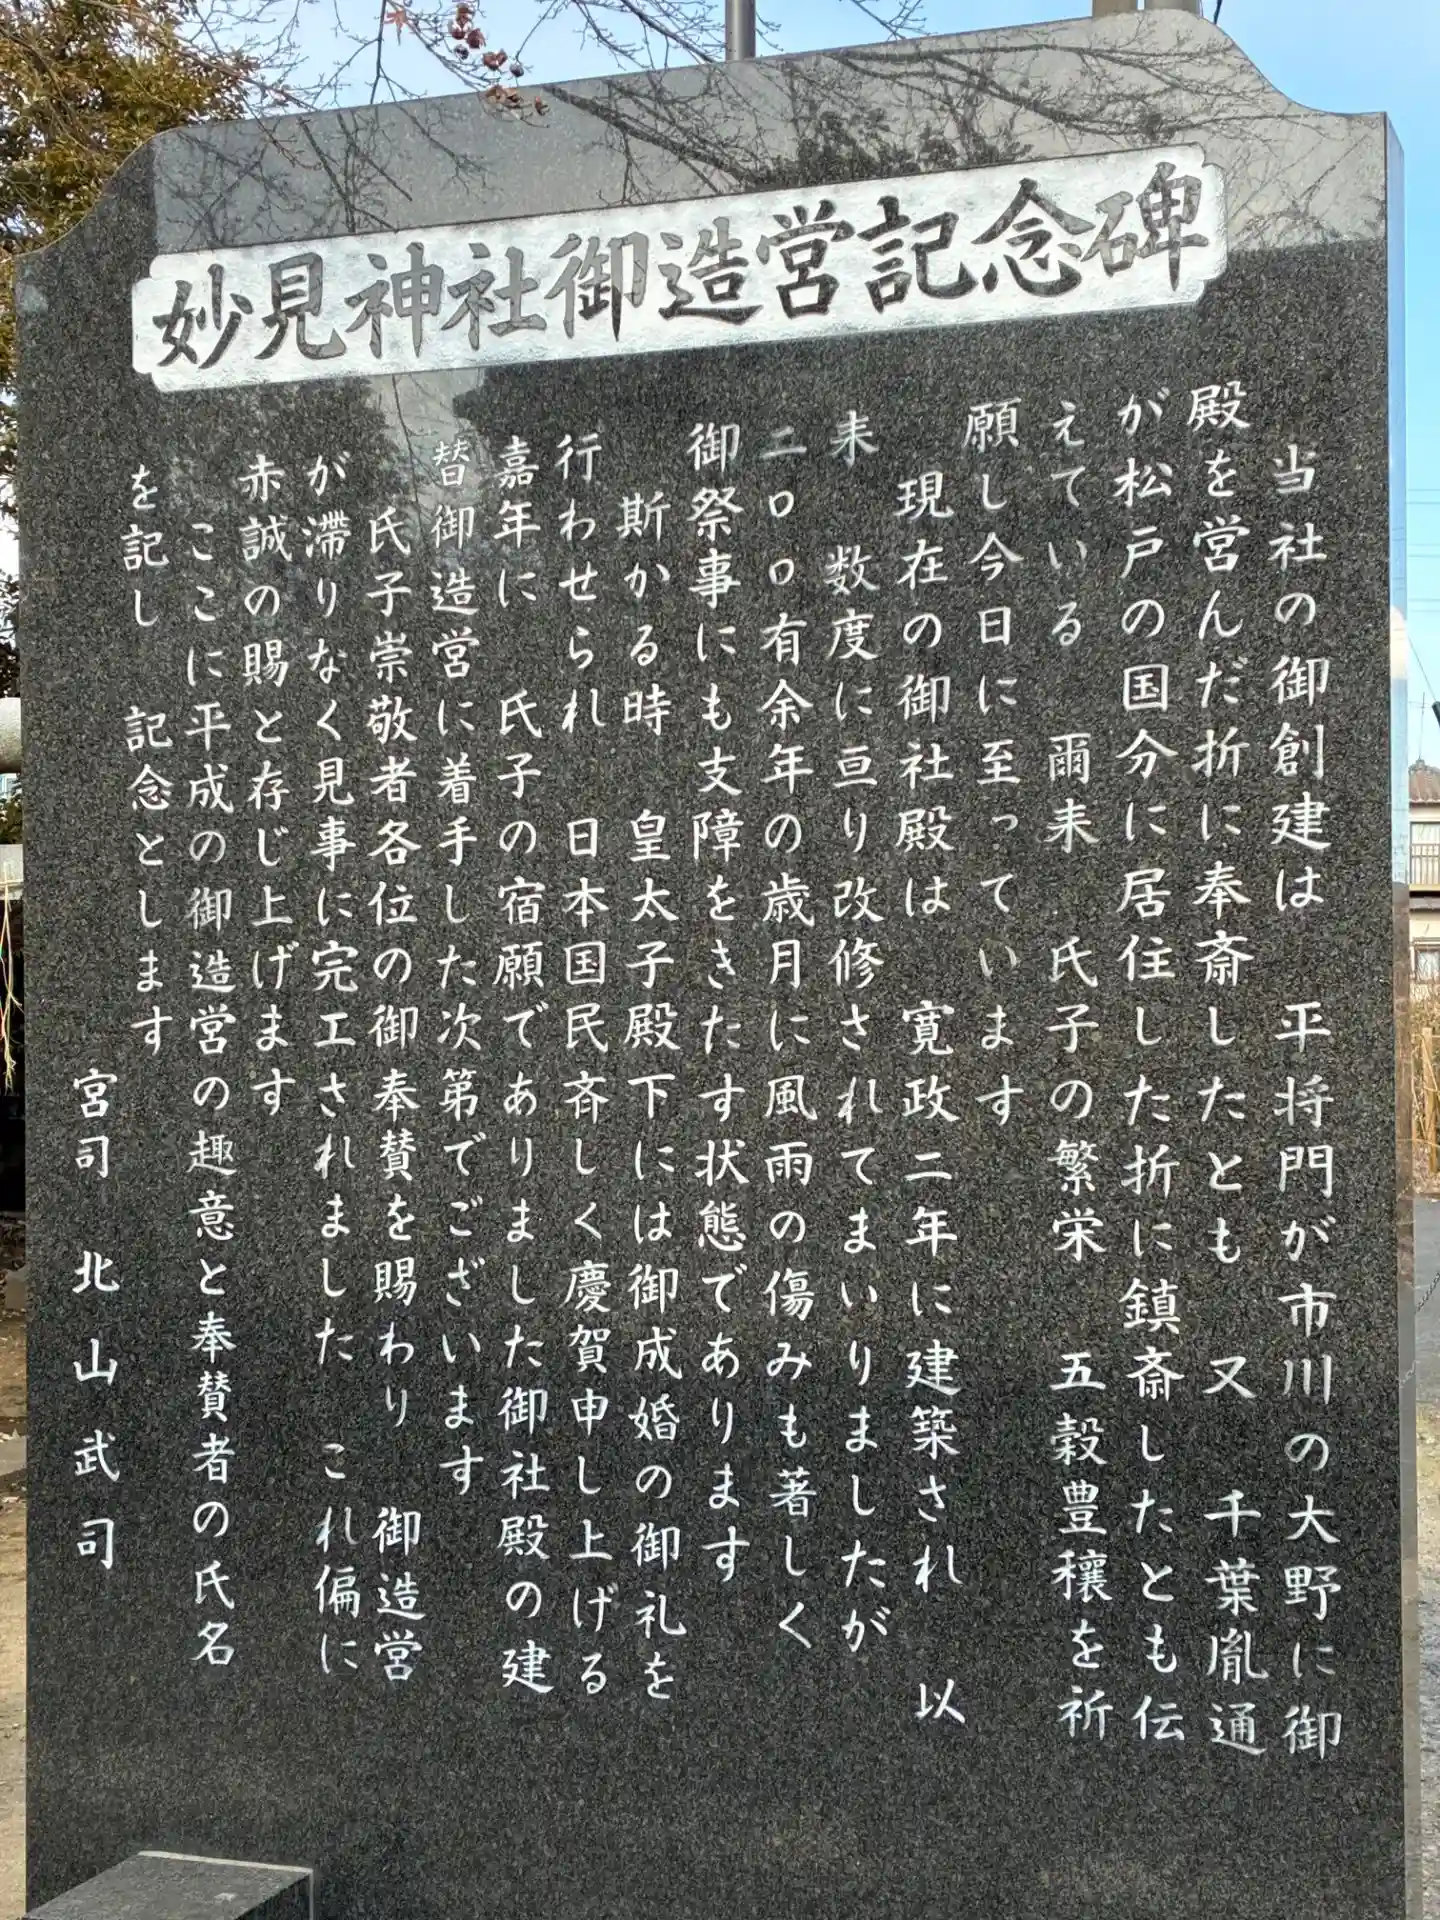 妙見神社御造営記念碑
当社の御創建は 平将門が市川の大野に御
殿を営んだ折に奉斎したとも 又 千葉胤通
が松戸の国分に居住した折に鎮斎したとも伝
えている 爾来 氏子の繁栄 五穀豊穣を祈
願し今日に至っています
現在の御社殿は 寛政二年に建築され 以
来 数度に亘り改修されてまいりましたが
二〇〇有余年の歳月に風雨の傷みも著しく
御祭事にも支障をきたす状態であります
斯かる時 皇太子殿下には御成婚の御礼を
行わせられ 日本国民斉しく慶賀申し上げる
嘉年に 氏子の宿願でありました御社殿の建
替御造営に着手した次第でございます
氏子崇敬者各位の御奉賛を賜わり 御造営
が滞りなく見事に完工されました これ偏に
赤誠の賜と存じ上げます
ここに平成の御造営の趣意と奉賛者の氏名
を記し 記念とします
宮司 北山武司